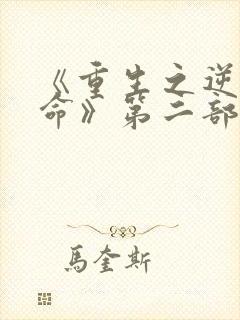 《重生之逆
命》第二部
馬奎斯